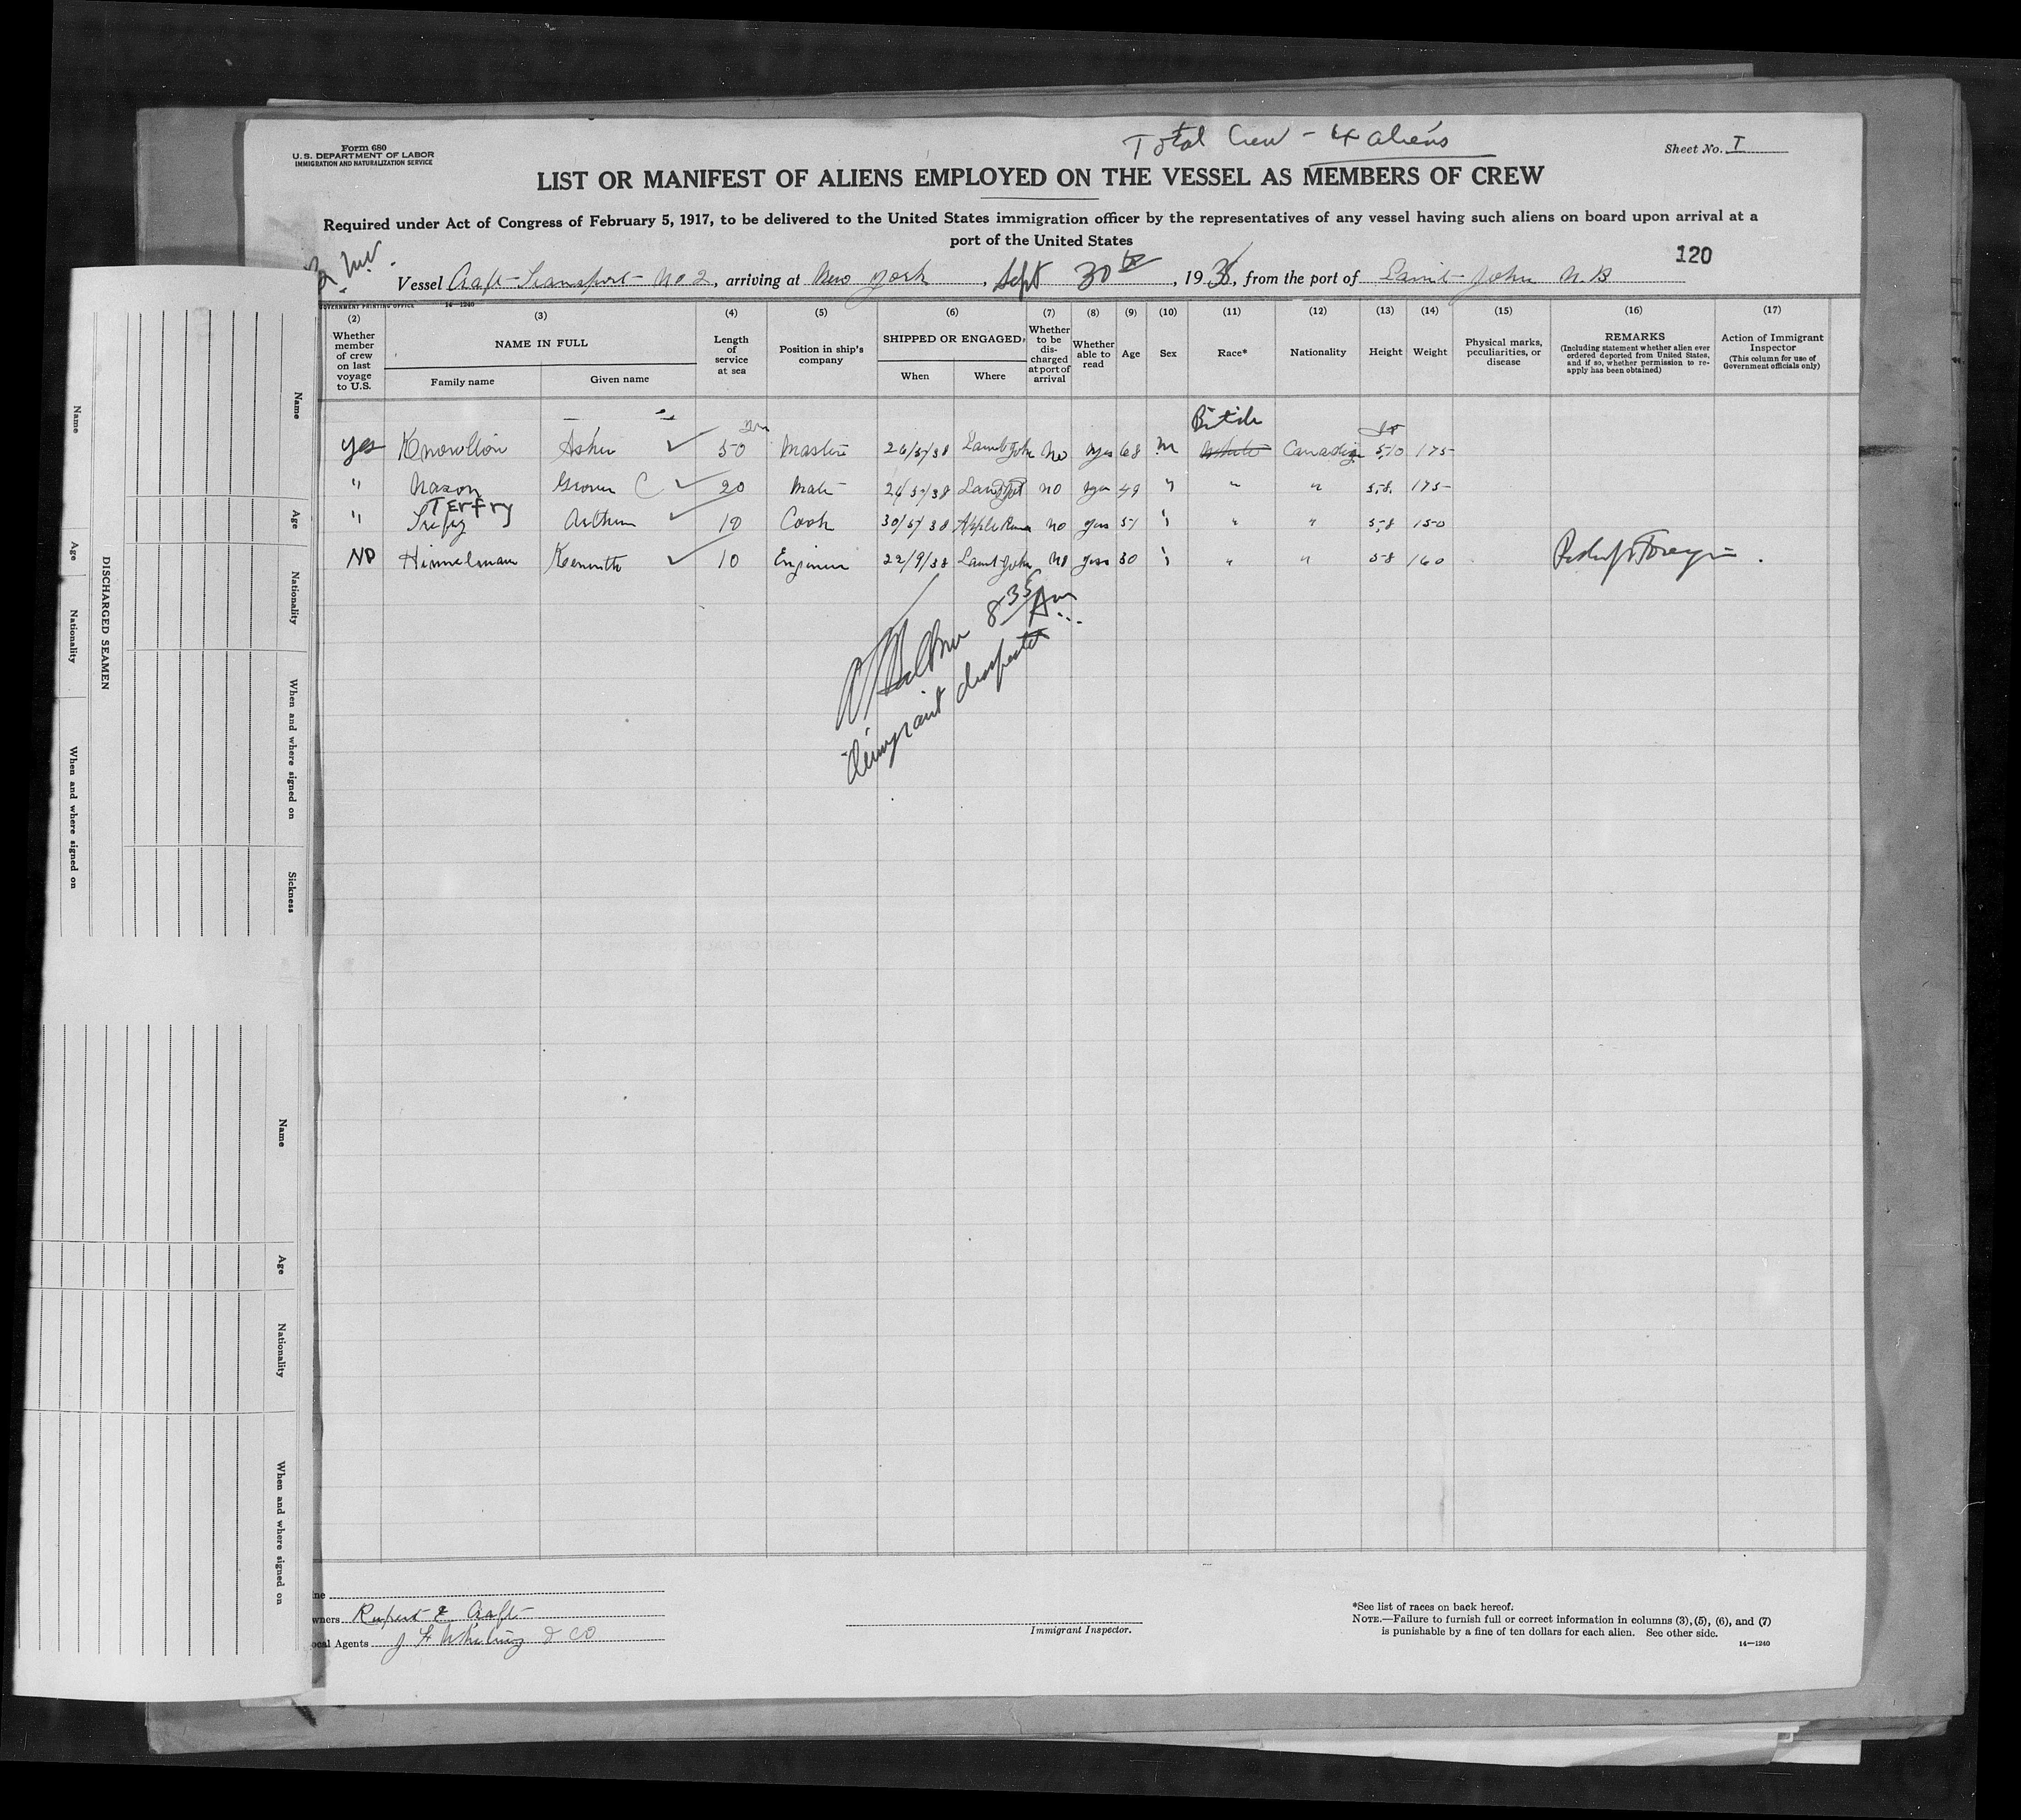 Total Crew - 4 aliens
Form 680
U.S. DEPARTMENT OF LABOR
IMMIGRATION AND NATURALIZATION SERVICE
Sheet No. I
LIST OR MANIFEST OF ALIENS EMPLOYED ON THE VESSEL AS MEMBERS OF CREW
Required under Act of Congress of February 5, 1917, to be delivered to the United States immigration officer by the representatives of any vessel having such aliens on board upon arrival at a
port of the United States
120
Vessel Craft Transport No 2, arriving at New York, Sept 30th, 1938, from the port of Saint John N.B
GOVERNMENT PRINTING OFFICE 14—1240
(2) Whether member of crew on last voyage to U.S.
(3) NAME IN FULL
Family name Given name
(4) Length of service at sea
(5) Position in ship's company
(6) SHIPPED OR ENGAGED
When Where
(7) Whether to be discharged at port of arrival
(8) Whether able to read
(9) Age
(10) Sex
(11) Race*
(12) Nationality
(13) Height
(14) Weight
(15) Physical marks, peculiarities, or disease
(16) REMARKS
(Including statement whether alien ever ordered deported from United States, and if so, whether permission to reapply has been obtained)
(17) Action of Immigrant Inspector
(This column for use of Government officials only)
British
yes Knowlton Asher 50 Master 26/5/38 Saint John No yes 68 M White Canadian 5,10 175
" Nason Grover C 20 Mate 26/5/38 Saint John no yes 49 " " " 5,8 175
Terfry
" Arthur 10 Cook 30/5/38 Apple River no yes 51 " " " 5,8 150
NO Himmelman Kenneth 10 Engineer 22/9/38 Saint John No yes 30 " " " 5-8 160
8 35 Am
immigrant inspector
Owners Rupert E Craft
Local Agents J F Whitney & CO
Immigrant Inspector.
*See list of races on back hereof.
NOTE.—Failure to furnish full or correct information in columns (3), (5), (6), and (7)
is punishable by a fine of ten dollars for each alien. See other side.
14—1240
DISCHARGED SEAMEN
Name
Age
Nationality
When and where signed on
Name
Age
Nationality
When and where signed on
Sickness
Name
Age
Nationality
When and where signed on